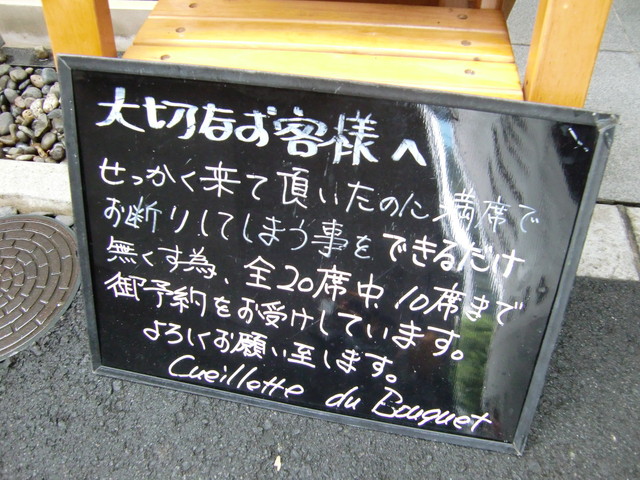 大切なお客様へ
せっかく来て頂いたのに満席で
お断りしてしまう事をできるだけ
無くす為、全20席中10席まで
御予約をお受けしています。
よろしくお願い至します。
Cueillette du Bouquet